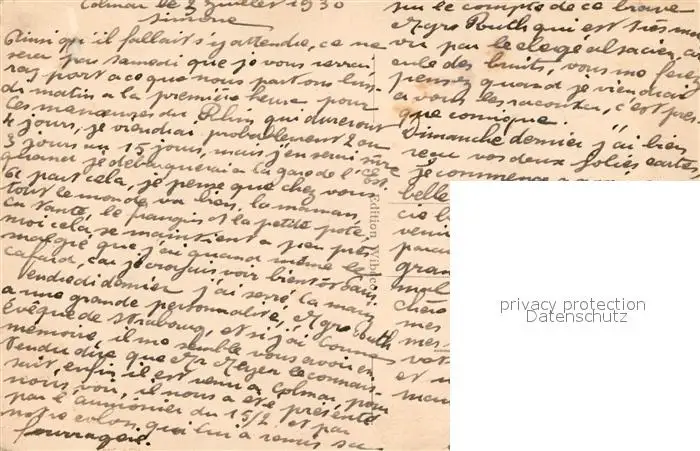 Colmar le 3 Juillet 1930
Simone
Ainsi qu'il fallait s'y attendre, ce ne
sera pas samedi que je vous verrai,
rapport a ce que nous partons lun-
di matin a la première heure, pour
les manoeuvres du Rhin qui dureront
4 jours, je viendrai probablement 2 ou
3 jours au 15 jours, mais j'en serai sure
quand je débarquerai a la gare de l'Est.
A part cela, je pense que chez vous
tout le monde va bien, la maman,
la santé, le frangin et la petite pote,
moi cela se maintient a peu près
malgré que j'ai quand même le
cafard, car je croyais voir bientôt Paris.
Vendredi dernier j'ai serré la main
a une grande personnalité, Mgr Ruch
évêque de Strasbourg, et si j'ai bonne
mémoire, il me semble vous avoir en-
tendu dire que Mr Meyer le connais-
sait, enfin il est venu a Colmar, pour
nous voir, il nous a été présenté
par l'aumonier du 15/2 et par
notre colon, qui lui a remis sa
fourragère.
Edition Wibaco
sur le compte de ce brave
Mgr Routh qui est très mal
vu par le clergé alsacien, il
cule des bruits, vous me ferez
penser quand je viendrai
a vous les raconter, c'est pres-
que comique.
Dimanche dernier j'ai bien
reçu vos deux jolies cartes,
je commence a
belle
cie b
veni
parai
gran
mal
chère
mes
mes-
vot
et u
man
privacy protection
Datenschutz